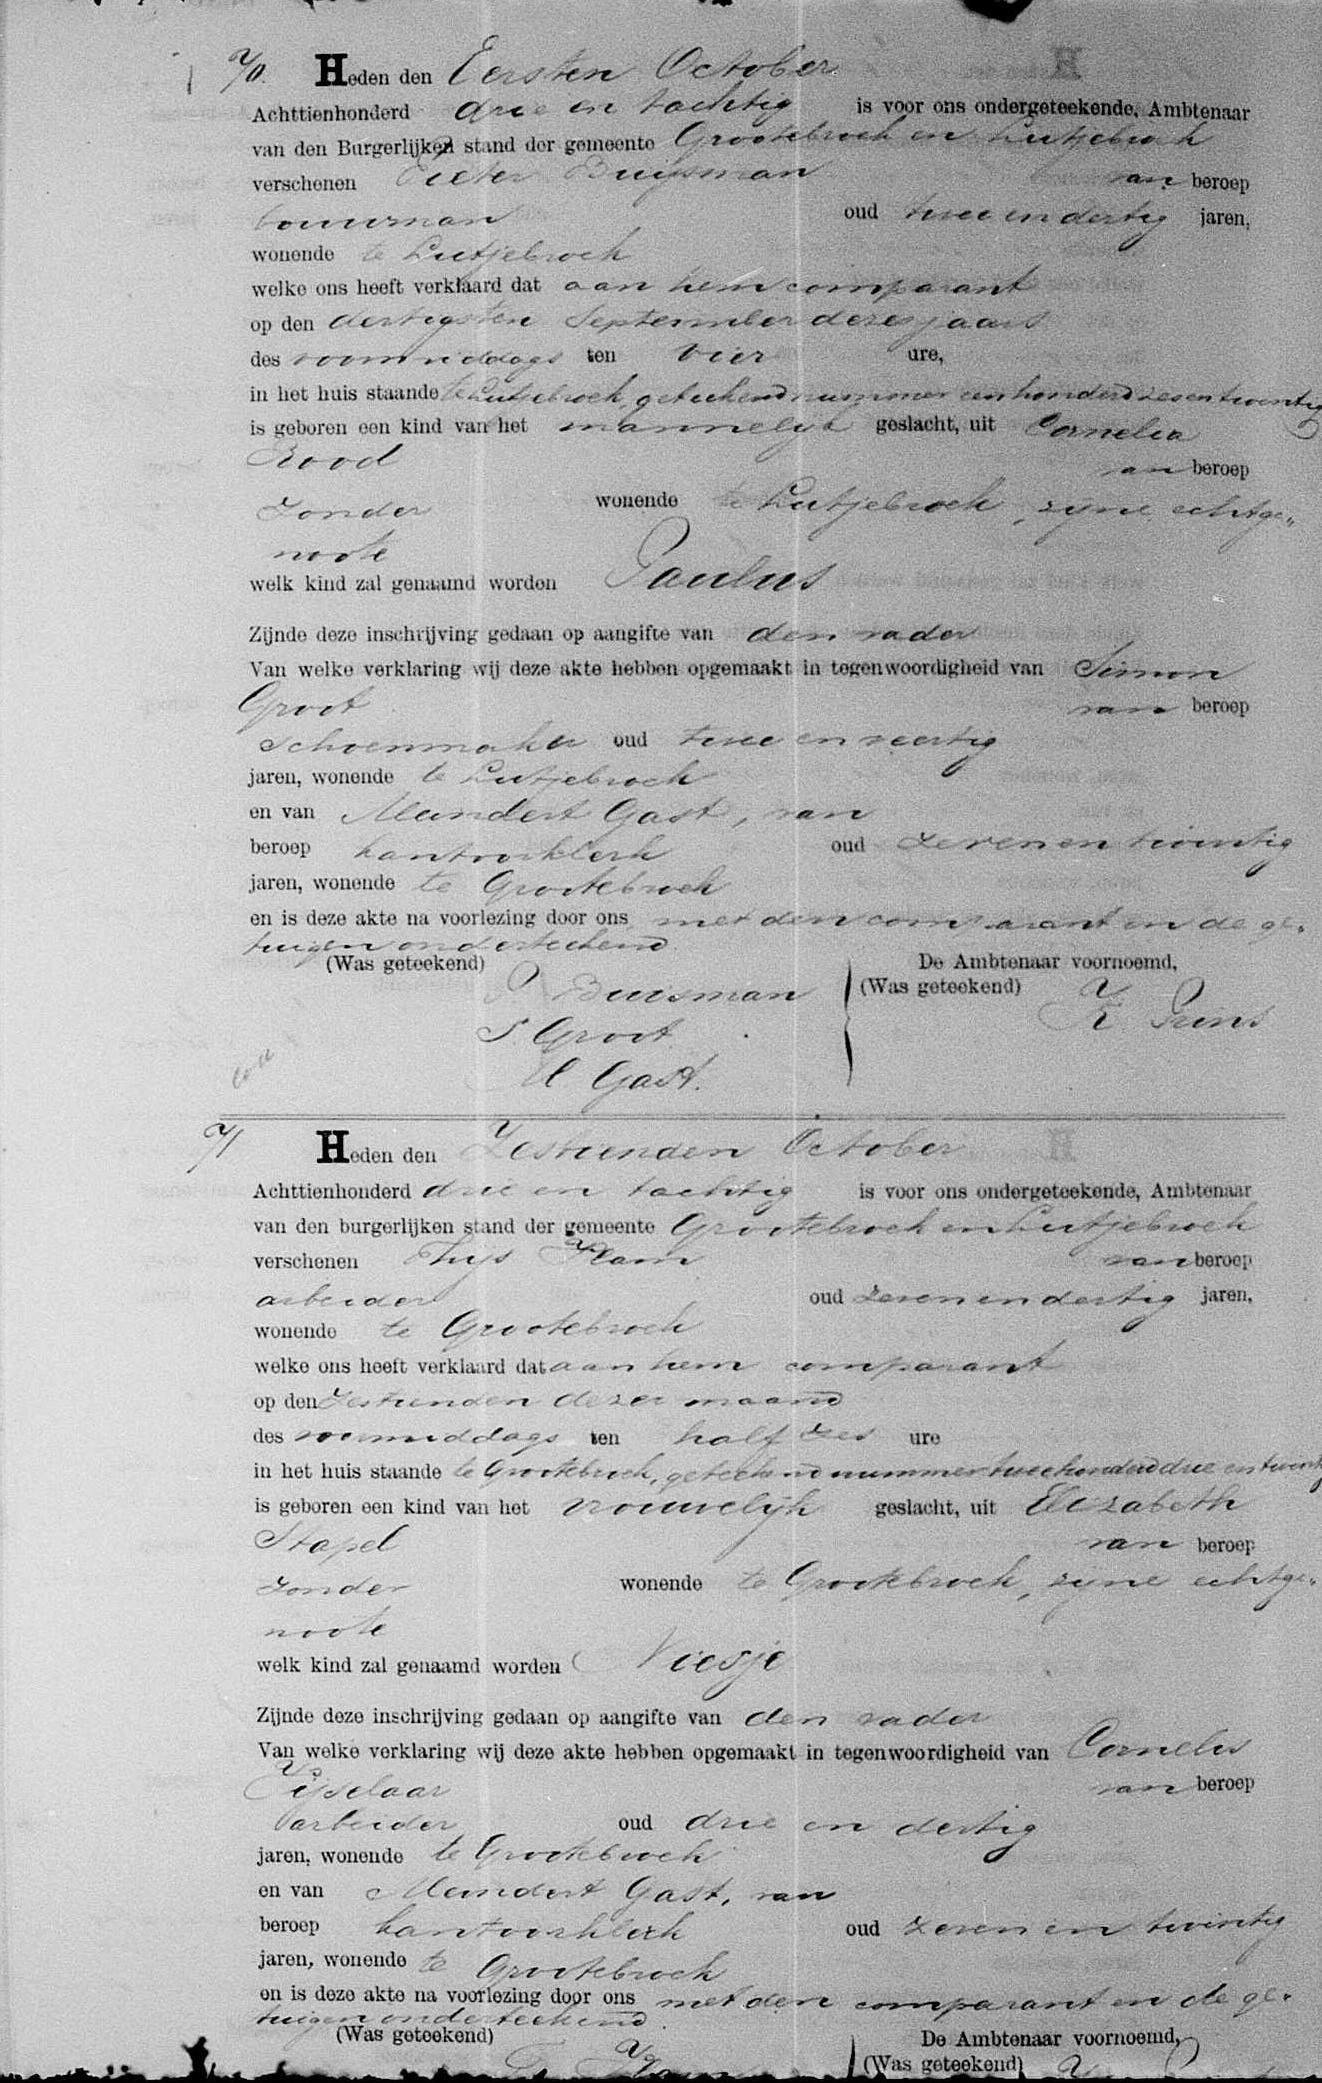 70. Heden den Eersten October
Achttienhonderd drie en tachtig is voor ons ondergeteekende, Ambtenaar
van den Burgerlijken stand der gemeente Grootebroek en Lutjebroek
verschenen Pieter Buijsman van beroep
bouwman oud twee en dertig jaren,
wonende te Lutjebroek
welke ons heeft verklaard dat aan hem comparant
op den dertigsten September dezes jaars
des voormiddags ten vier ure,
in het huis staande te Lutjebroek, geteekend nummer een honderd zes en twintig
is geboren een kind van het mannelijk geslacht, uit Cornelia
Rood van beroep
zonder wonende te Lutjebroek, zijne echtge„
noote
welk kind zal genaamd worden Paulus
Zijnde deze inschrijving gedaan op aangifte van den vader
Van welke verklaring wij deze akte hebben opgemaakt in tegenwoordigheid van Simon
Groot van beroep
schoenmaker oud twee en veertig
jaren, wonende te Lutjebroek
en van Meindert Gast, van
beroep kantoorklerk oud zeven en twintig
jaren, wonende te Grootebroek
en is deze akte na voorlezing door ons met den comparant en de ge„
tuigen onderteekend.
(Was geteekend) De Ambtenaar voornoemd,
P Buisman (Was geteekend) K.
S Groot
M Gast.
71 Heden den Zestienden October
Achttienhonderd drie en tachtig is voor ons ondergeteekende, Ambtenaar
van den burgerlijken stand der gemeente Grootebroek en Lutjebroek
verschenen Thijs Ham van beroep
arbeider oud zeven en dertig jaren,
wonende te Grootebroek
welke ons heeft verklaard dat aan hem comparant
op den zestienden dezer maand
des voormiddags ten half zes ure
in het huis staande te Grootebroek, geteekend nummer twee honderd drie en twintig
is geboren een kind van het vrouwelijk geslacht, uit Elizabeth
Stapel van beroep
zonder wonende te Grootebroek, zijne echtge„
noote
welk kind zal genaamd worden Niesje
Zijnde deze inschrijving gedaan op aangifte van den vader
Van welke verklaring wij deze akte hebben opgemaakt in tegenwoordigheid van Cornelis
van beroep
arbeider oud drie en dertig
jaren, wonende te Grootebroek
en van Meindert Gast, van
beroep kantoorklerk oud zeven en twintig
jaren, wonende te Grootebroek
en is deze akte na voorlezing door ons met den comparant en de ge„
tuigen onderteekend.
(Was geteekend) De Ambtenaar voornoemd,
(Was geteekend)